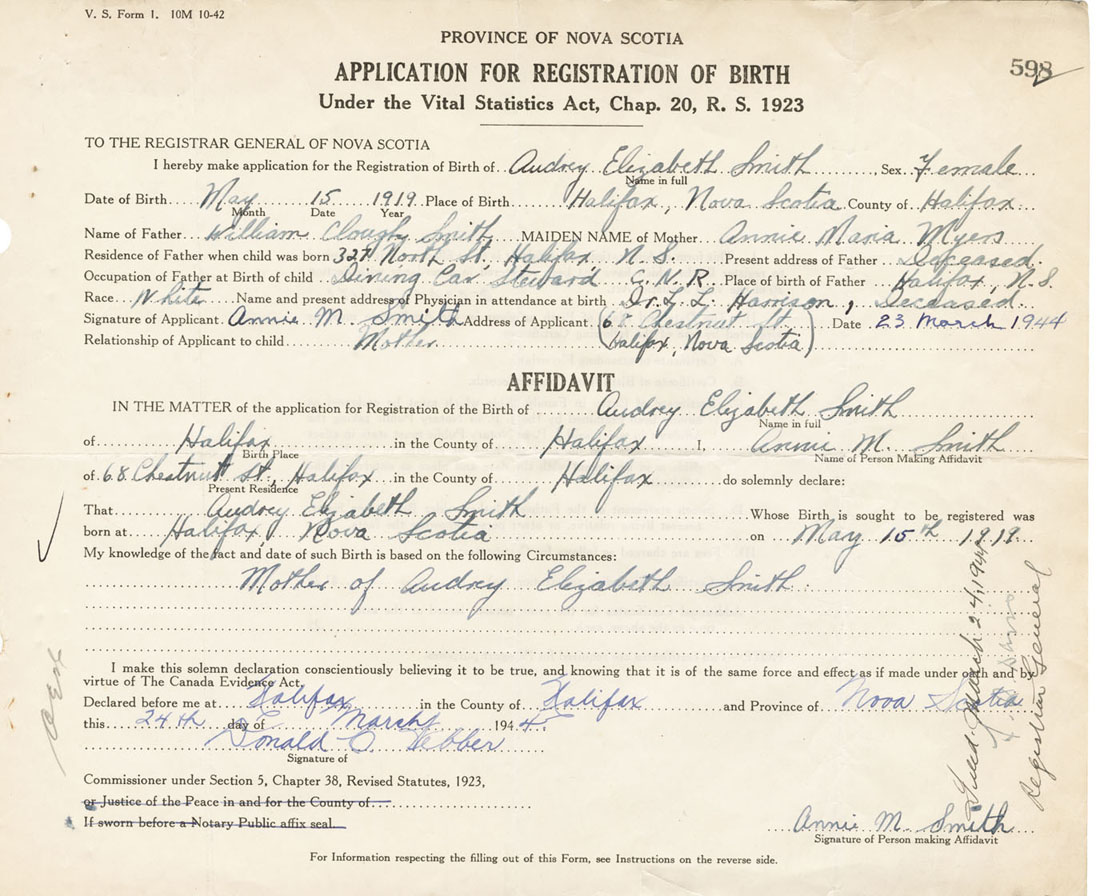 V. S. Form 1. 10M 10-42
PROVINCE OF NOVA SCOTIA
598
APPLICATION FOR REGISTRATION OF BIRTH
Under the Vital Statistics Act, Chap. 20, R. S. 1923
TO THE REGISTRAR GENERAL OF NOVA SCOTIA
I hereby make application for the Registration of Birth of Audrey Elizabeth Smith, Sex Female
Name in full
Date of Birth May 15 1919 Place of Birth Halifax, Nova Scotia County of Halifax
Month Date Year
Name of Father William Clough Smith MAIDEN NAME of Mother Annie Maria Myers
Residence of Father when child was born 327 North St. Halifax N.S. Present address of Father Deceased.
Occupation of Father at Birth of child Dining Car Steward C.N.R. Place of birth of Father Halifax, N.S.
Race White Name and present address of Physician in attendance at birth Dr. L. L. Harrison, Deceased.
Signature of Applicant Annie M. Smith Address of Applicant (68 Chestnut St. Date 23 March 1944
Relationship of Applicant to child Mother Halifax, Nova Scotia)
AFFIDAVIT
IN THE MATTER of the application for Registration of the Birth of Audrey Elizabeth Smith
Name in full
of Halifax in the County of Halifax I, Annie M. Smith
Birth Place Name of Person Making Affidavit
of 68 Chestnut St., Halifax in the County of Halifax do solemnly declare:
Present Residence
That Audrey Elizabeth Smith Whose Birth is sought to be registered was
born at Halifax Nova Scotia on May 15th 1919.
My knowledge of the fact and date of such Birth is based on the following Circumstances:
Mother of Audrey Elizabeth Smith
I make this solemn declaration conscientiously believing it to be true, and knowing that it is of the same force and effect as if made under oath and by
virtue of The Canada Evidence Act.
Declared before me at Halifax in the County of Halifax and Province of Nova Scotia
this 24th day of March 1944
Donald C. Webber
Signature of
Commissioner under Section 5, Chapter 38, Revised Statutes, 1923,
or Justice of the Peace in and for the County of
If sworn before a Notary Public affix seal.
Annie M. Smith
Signature of Person making Affidavit
For Information respecting the filling out of this Form, see Instructions on the reverse side.
March 24, 1944
Registrar General